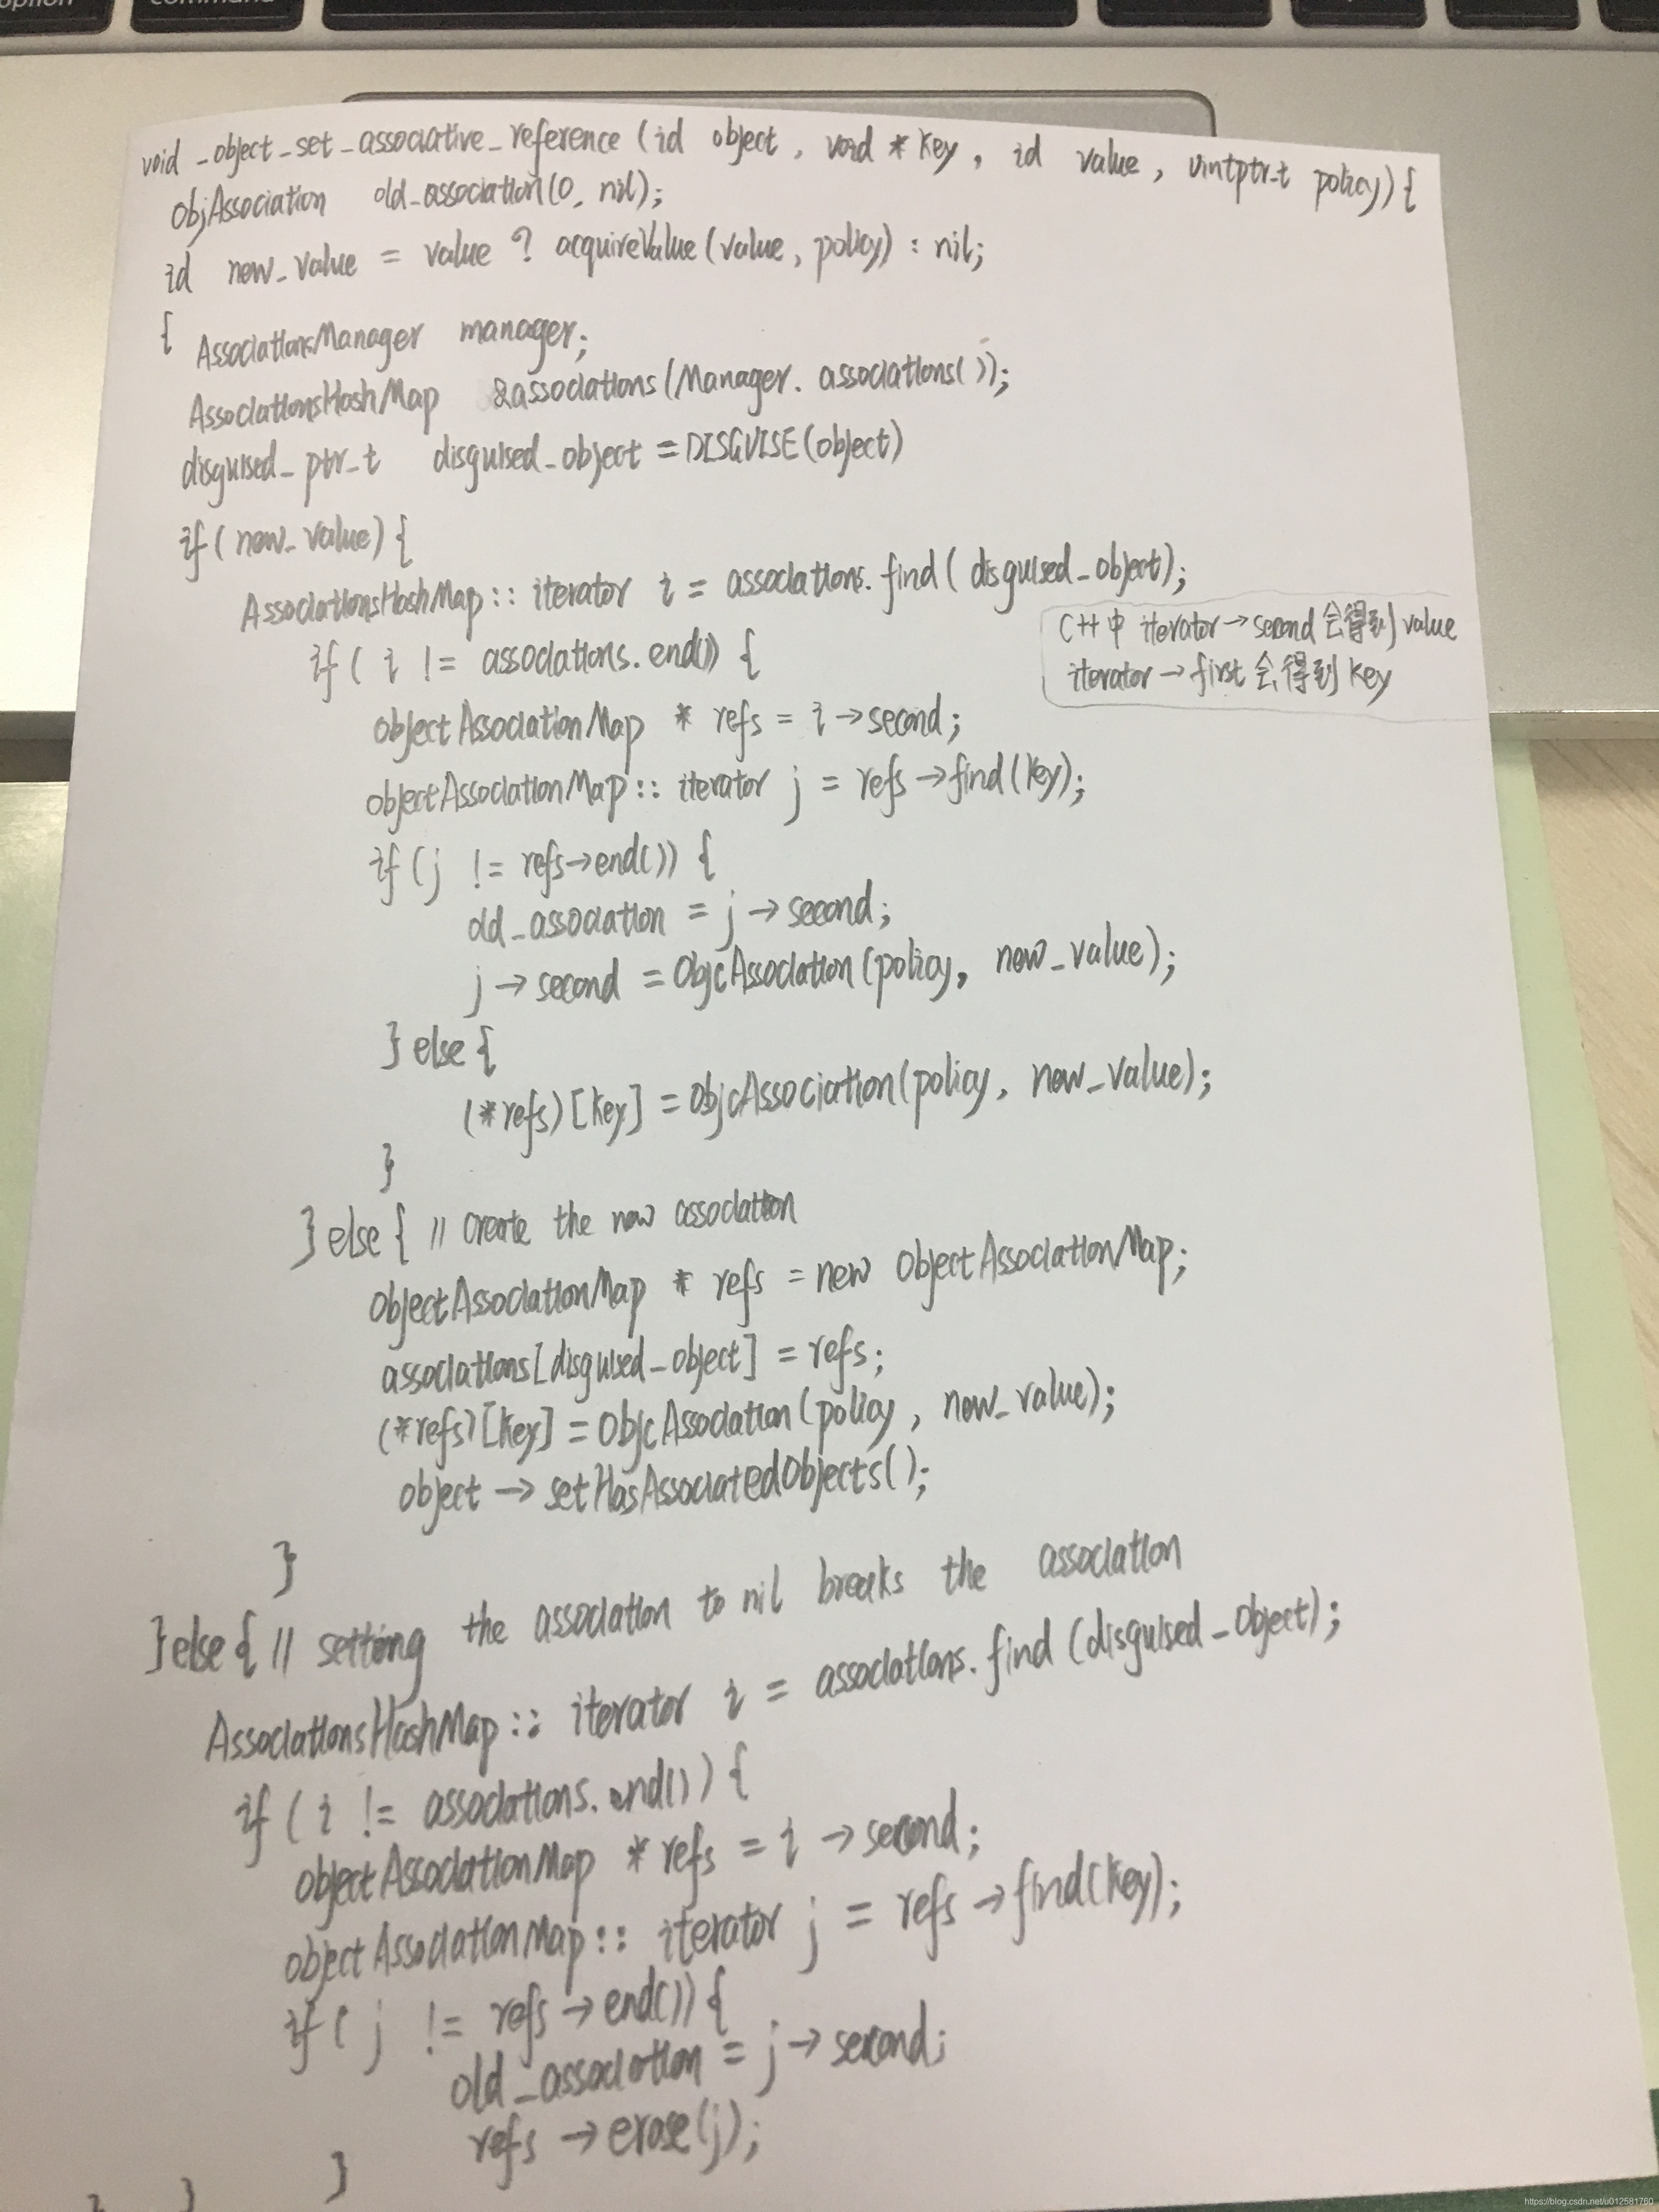 option
command
void _object_set_associative_reference (id object, void * key, id value, uintptr_t policy) {
ObjAssociation old_association(0, nil);
id new_value = value ? acquireValue(value, policy) : nil;
{ AssociationsManager manager;
AssociationsHashMap &associations(Manager. associations());
disguised_ptr_t disguised_object = DISGUISE(object)
if (new_value) {
AssociationsHashMap:: iterator i = associations. find( disguised_object);
C++中 iterator→second会得到 value
iterator→first会得到 key
if ( i != associations. end()) {
objectAssociationMap * refs = i→second;
objectAssociationMap:: iterator j = refs→find(key);
if (j != refs→end()) {
old_association = j→second;
j→second = ObjcAssociation(policy, new_value);
} else {
(*refs)[key] = ObjcAssociation(policy, new_value);
}
} else { // create the new association
ObjectAssociationMap * refs = new ObjectAssociationMap;
associations[disguised_object] = refs;
(*refs)[key] = ObjcAssociation(policy, new_value);
object → setHasAssociatedObjects();
}
} else { // setting the association to nil breaks the association
AssociationsHashMap:: iterator i = associations. find (disguised_object);
if ( i != associations. end()) {
objectAssociationMap * refs = i → second;
objectAssociationMap:: iterator j = refs → find(key);
if ( j != refs → end()) {
old_association = j → second;
refs → erase(j);
} } }
https://blog.csdn.net/u012581760